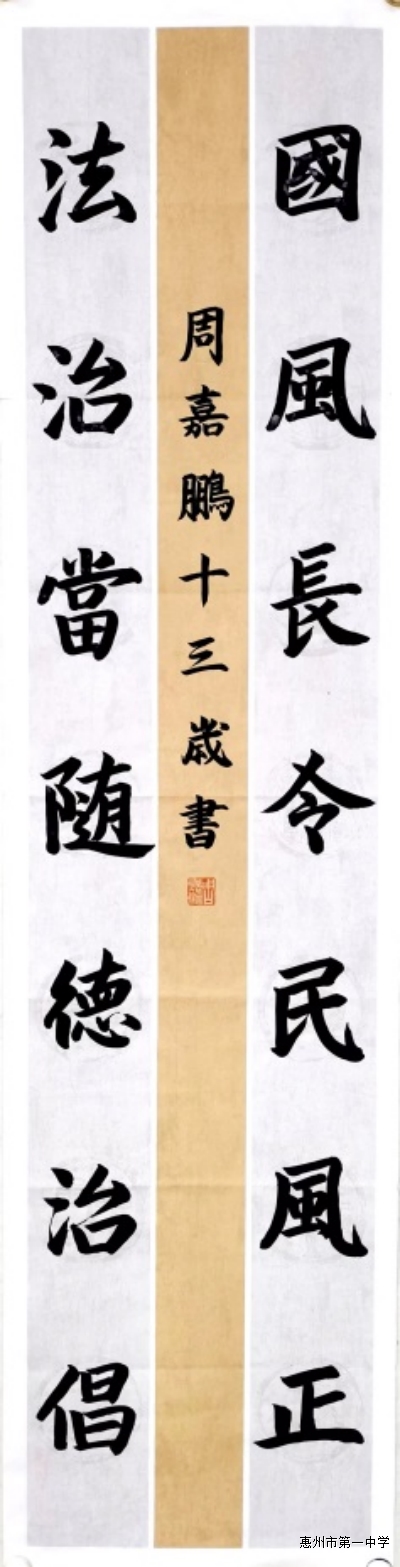 國風長令民風正
法治當随德治倡
周嘉鵬十三歲書
惠州市第一中学